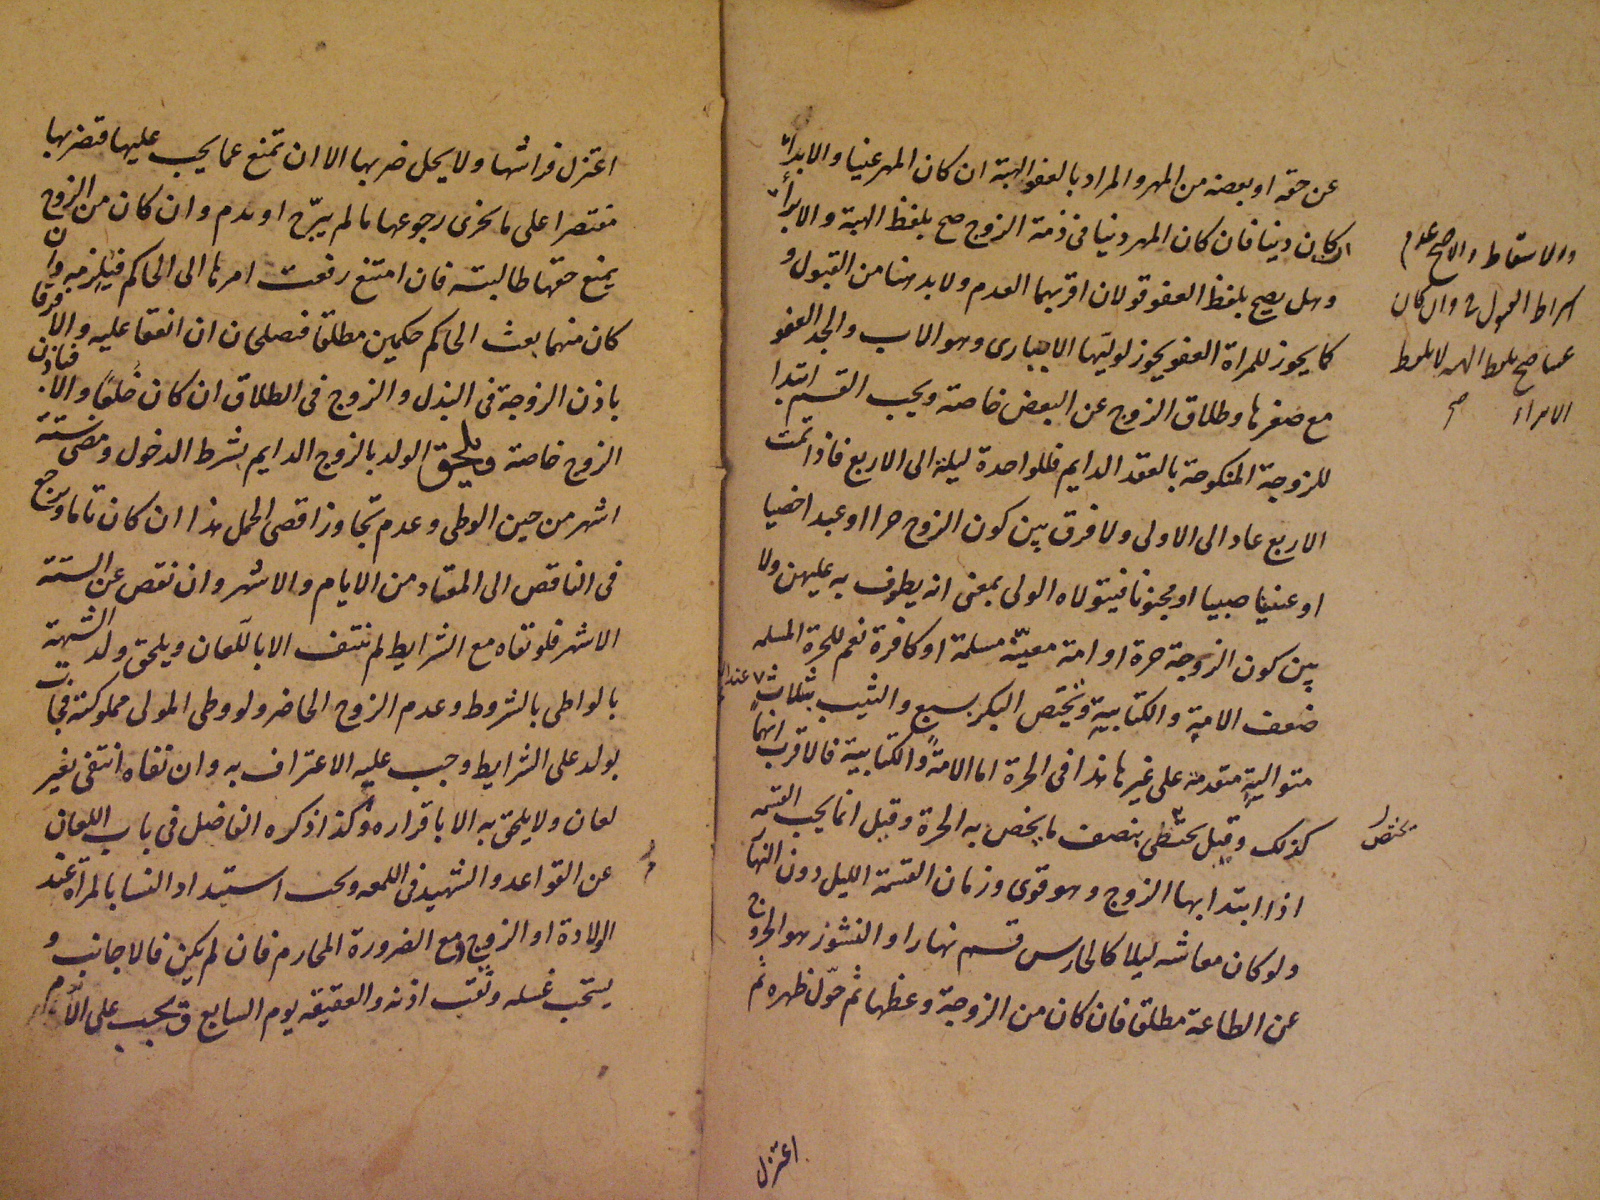 عن حقه او بعضه من المهر والمراد بالعفو الهبة ان كان المهر عينا والابراء
ان كان دينا فان كان المهر دينا فى ذمة الزوج صح بلفظ الهبة والابراء
وهل يصح بلفظ العفو قولان اقربهما العدم ولا بد هنا من القبول و
كما يجوز للمراة العفو يجوز لوليها الاجبارى وهو الاب والجد العفو
مع صغرها وطلاق الزوج عن البعض خاصة ويجب القسم ابتدا
للزوجة المنكوحة بالعقد الدايم فللواحدة ليلة الى الاربع فاذا تمت
الاربع عاد الى الاولى ولا فرق بين كون الزوج حرا او عبدا خصيا
او عنينا صبيا او مجنونا فيتولاه الولى بمعنى انه يطوف به عليهن ولا
بين كون الزوجة حرة او امة معينة مسلمة او كافرة نعم للحرة المسلمه
ضعف الامة والكتابية وتختص البكر بسبع والثيب بثلاث
متوالية متقدمة على غيرها هذا فى الحرة اما الامة والكتابية فالاقرب انهما
كذلك وقيل تختص بنصف ما يخص به الحرة وقيل انما يجب القسمه
اذا ابتدا بها الزوج وهو قوى وزمان القسمة الليل دون النهار
ولو كان معاشه ليلا كالحارس قسم نهارا والنشوز هو الخروج
عن الطاعة مطلقا فان كان من الزوجة وعظها ثم حول ظهره ثم
والاسقاط والاصح عدم
عينا صح بلفظ الهبه لا بلفظ
الابراء صح
تختص
اعتزل
اعتزل فراشها ولا يحل ضربها الا ان تمنع عما يجب عليها فتضربها
مقتصرا على ما يحرى رجوعها ما لم يبرح او يدم وان كان من الزوج
يمنع حقها طالبته فان امتنع رفعت امرها الى الحاكم فيلزمه وان
كان منهما بعث الحاكم حكمين مطلقا فيصلحان ان اتفقا عليه والا فرقا
باذن الزوجة فى البذل والزوج فى الطلاق ان كان خلعا والا فباذن
الزوج خاصة ويلحق الولد بالزوج الدايم بشرط الدخول ومضى ستة
اشهر من حين الوطى وعدم تجاوز اقصى الحمل هذا ان كان تاما ويرجع
فى الناقص الى المعتاد من الايام والاشهر وان نقص عن الستة
الاشهر فلو نفاه مع الشرايط لم ينتف الا باللعان ويلحق ولد الشبهة
بالواطى بالشروط وعدم الزوج الحاضر ولو وطى المولى مملوكته فجاءت
بولد على الشرايط وجب عليه الاعتراف به وان نفاه انتفى بغير
لعان ولا يلحق به الا باقراره وكذا ذكره الفاضل فى باب اللعان
عن القواعد والشهيد فى اللمعه ويجب استبداد النسا بالمراة عند
الولادة او الزوج ومع الضرورة المحارم فان لم يكن فالاجانب و
يستحب غسله وثقب اذنه والعقيقه يوم السابع ويجب على الام